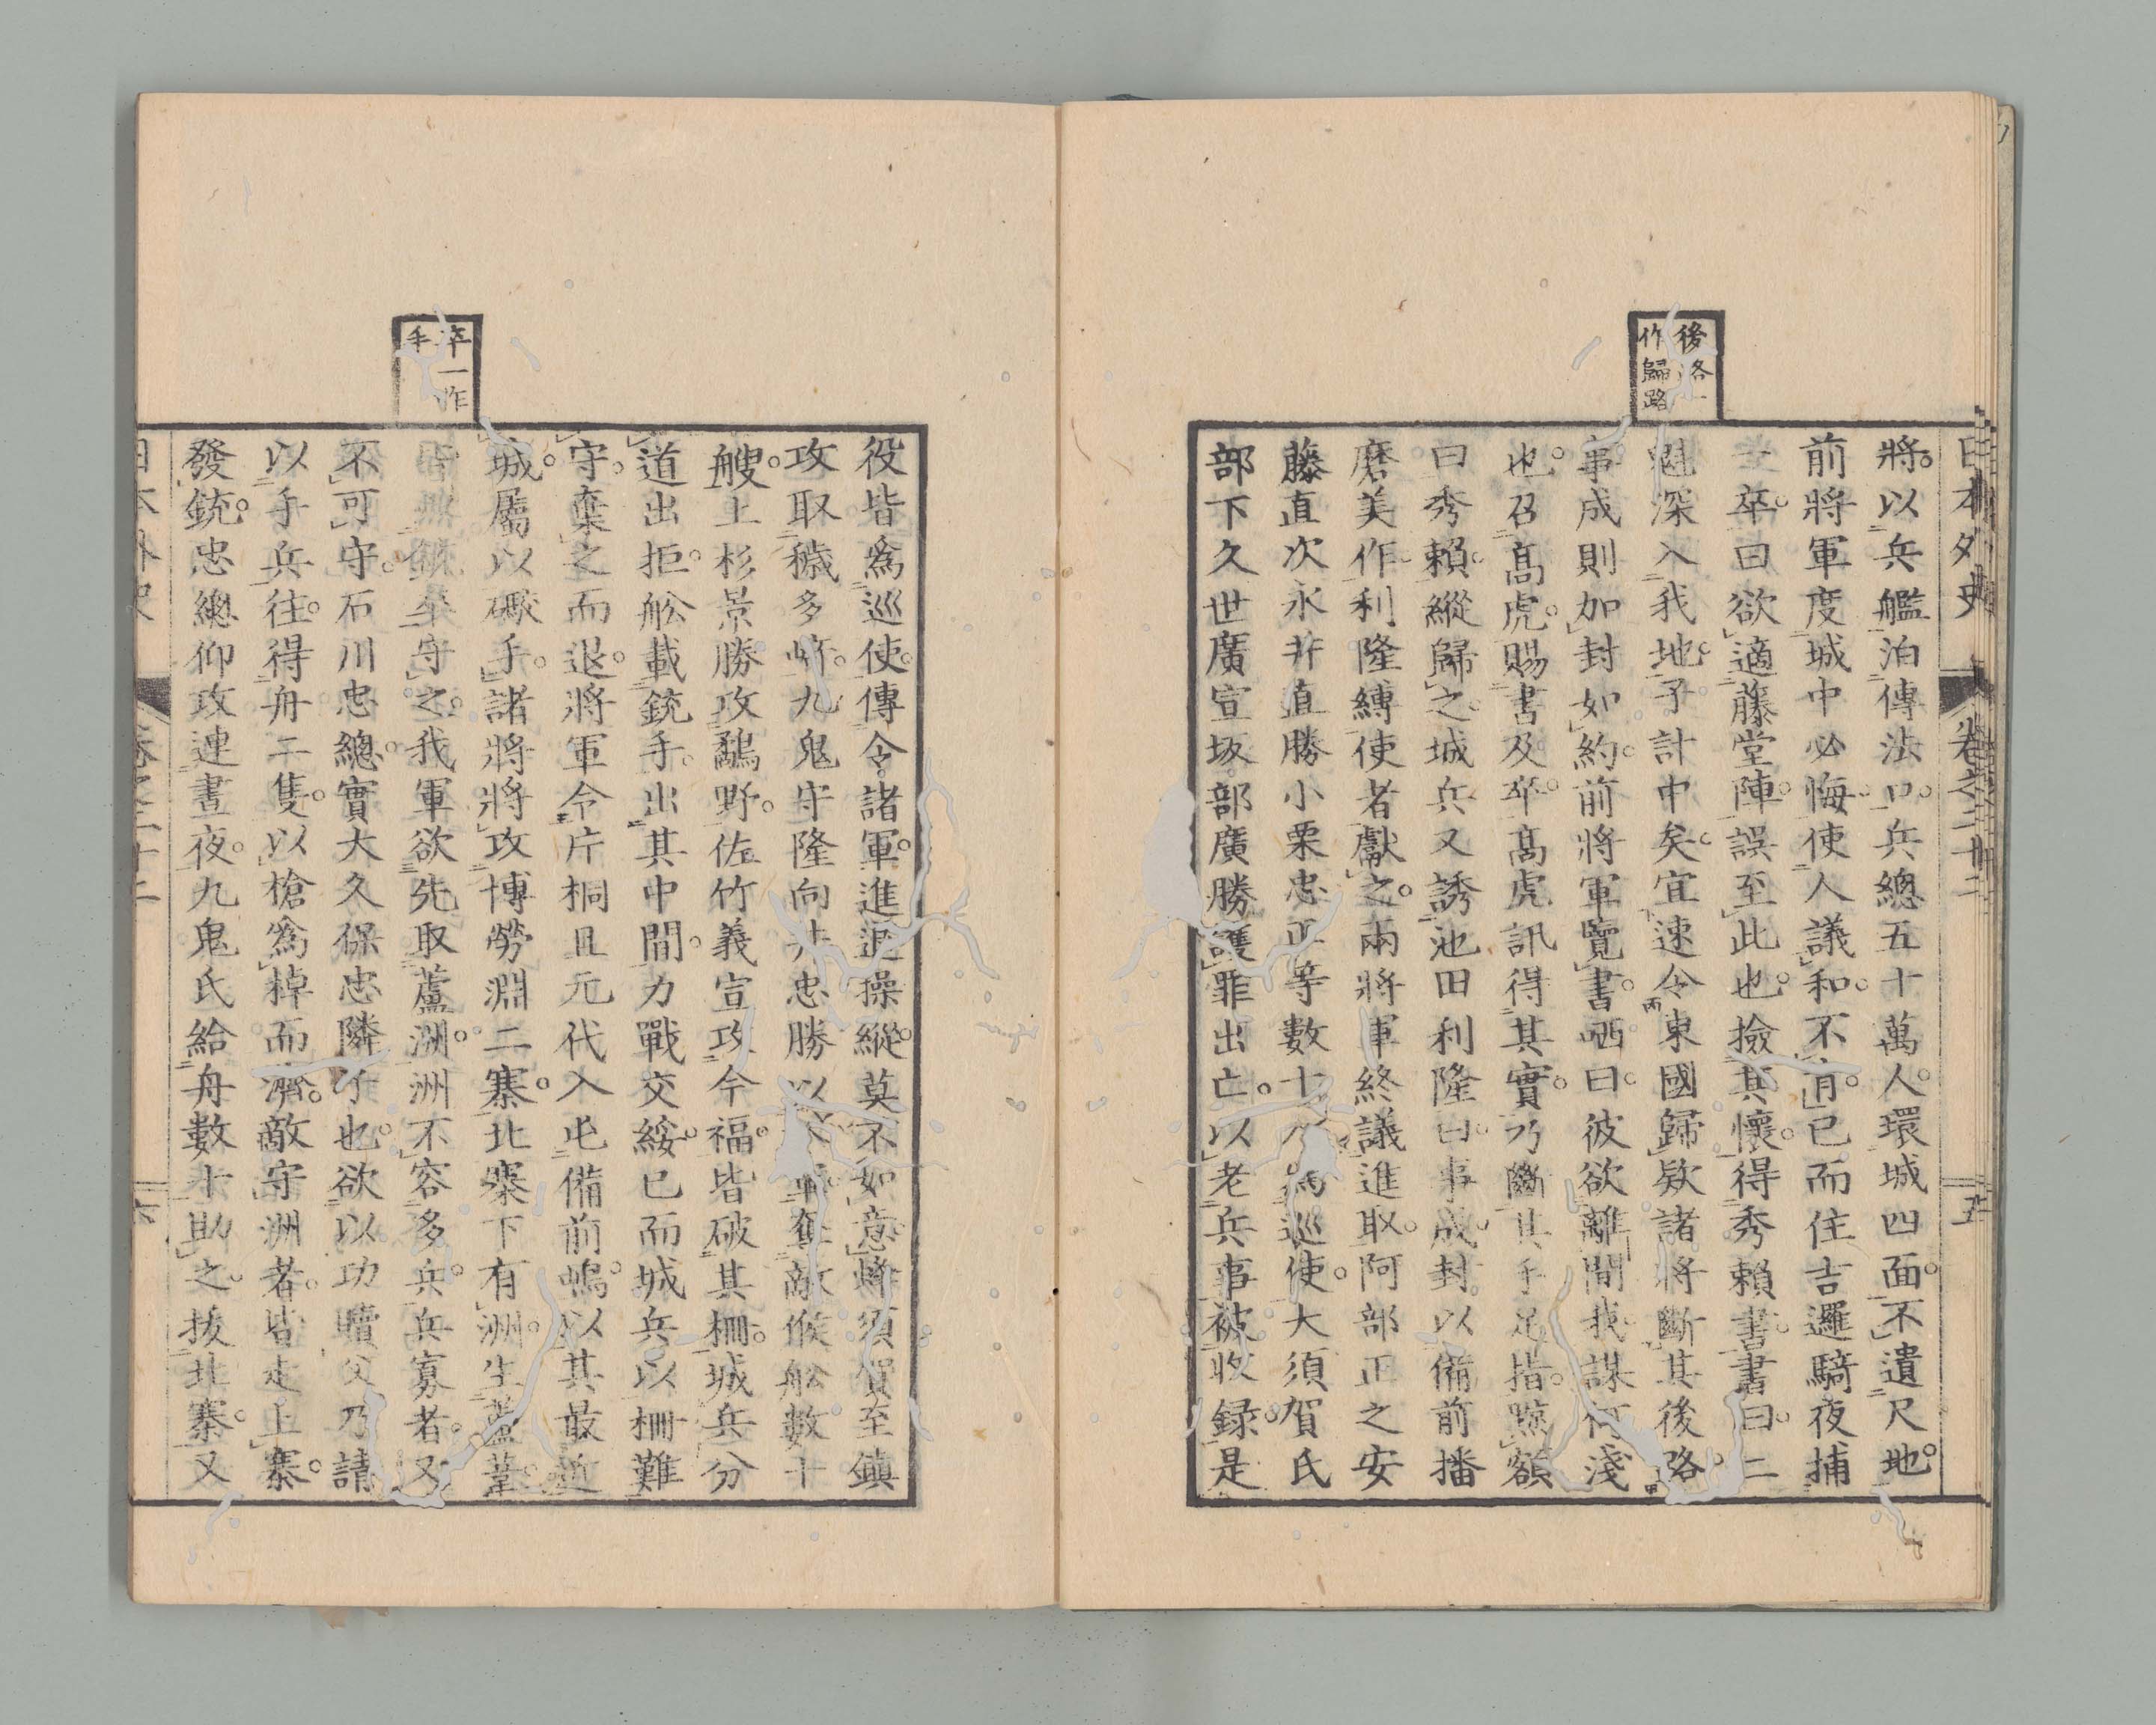 日本外史 卷之二十二 五
後路一
作歸路
將。以兵艦泊傳法口。兵總五十萬人。環城四面。不遺尺地。
前將軍度城中必悔。使人議和。不肯。已而住吉邏騎夜捕
卒。曰欲適藤堂陣。誤至此也。撿其懷。得秀賴書。書曰。二
魁深入我地。予計中矣。宜速令東國歸欵諸將斷其後路。
事成則加封如約。前將軍覽書。哂曰。彼欲離間我。謀何淺
也。召高虎。賜書及卒。高虎訊得其實。乃斷其手足指。黥額
曰秀賴。縱歸之。城兵又誘池田利隆曰。事成。封以備前播
磨美作。利隆縛使者獻之。兩將軍終議進取。阿部正之安
藤直次永井直勝小栗忠正等數十人爲巡使。大須賀氏
部下久世廣宣坂部廣勝護罪出亡。以老兵事被收録。是
卒一作
手
役皆爲巡使。傳令諸軍。進退操縱。莫不如意。蜂須賀至鎮
攻取穢多㟁。九鬼守隆向井忠勝以奪敵候舩數十
艘。上杉景勝攻鷸野。佐竹義宣攻今福。皆破其柵。城兵分
道出拒。舩載銃手。出其中間。力戰交綏。已而城兵以柵難
守。棄之而退。將軍令片桐且元代入屯備前嶋。以其最近
城。屬以礮手。諸將將攻博勞淵二寨。北寨下有洲。生蘆葦。
皆無守之。我軍欲先取蘆洲。洲不容多兵。兵寡者。又
不可守。石川忠總。實大久保忠隣子也。欲以功贖父。乃請
以手兵往。得舟二隻。以槍爲棹而濟。敵守洲者。皆走上寨。
發銃。忠總仰攻連晝夜。九鬼氏給舟數十助之。拔北寨。又
日本外史 卷之二十二 六